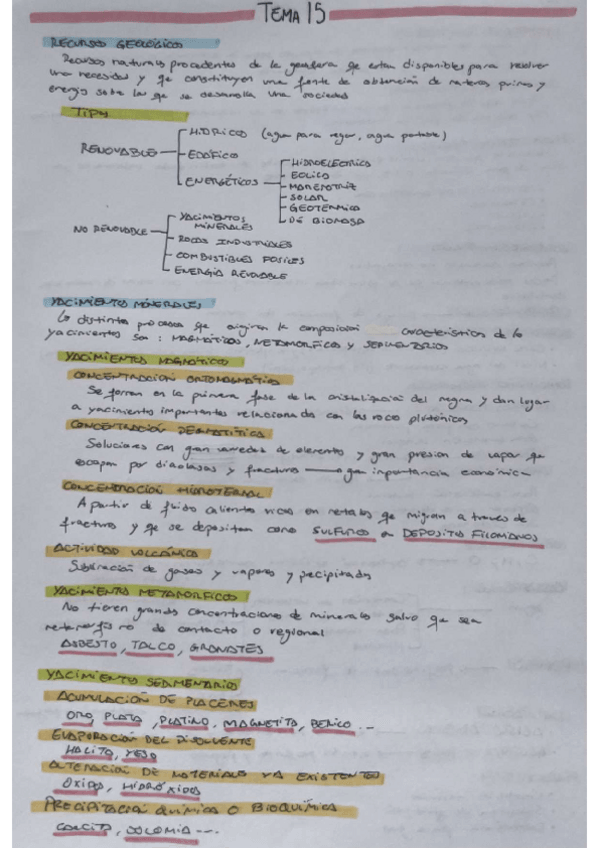 TEMA 15
RECURSOS GEOLÓGICOS
Recursos naturales procedentes de la geosfera qe estan disponibles para resolver
una necesidad y qe constituyen una fuente de obtención de materias primas y
energía sobre las qe se desarrolla una sociedad
TIPOS
RENOVABLE
HIDRICOS (agua para regar, agua potable)
EDÁFICO
ENERGÉTICOS
HIDROELECTRICA
EOLICA
MAREMOTRIZ
SOLAR
GEOTERMICA
DE BIOMASA
NO RENOVABLE
YACIMIENTOS MINERALES
ROCAS INDUSTRIALES
COMBUSTIBLES FOSILES
ENERGÍA
YACIMIENTOS MINERALES
Lo distintos procesos qe originan la composición características de lo
yacimientos son: MAGMÁTICOS, METAMORFICOS Y SEDIMENTARIOS
YACIMIENTOS MAGMÁTICOS
CONCENTRACIÓN ORTOMAGMÁTICA
Se forman en la primera fase de la cristalización del magma y dan lugar
a yacimientos importantes relacionada con las rocas plutónicas
CONCENTRACIÓN PEGMATÍTICA
Soluciones con gran variedad de elementos y gran presion de vapor qe
escapan por diaclasas y fracturas → gran importancia económica
CONCENTRACIÓN HIDROTERMAL
A partir de fluido calientes ricos en metales qe migran a traves de
fracturas y qe se depositan como SULFUROS en DEPOSITOS FILONIANOS
ACTIVIDAD VOLCÁNICA
Sublimación de gases y vapores y precipitados
YACIMIENTOS METAMORFICOS
No tienen grandes concentraciones de minerales salvo que sea
metamorfismo de contacto o regional
ASBESTO, TALCO, GRANATES
YACIMIENTO SEDIMENTARIOS
ACUMULACIÓN DE PLACERES
ORO, PLATA, PLATINO, MAGNETITA, BERILO ...
EVAPORACIÓN DEL DISOLVENTE
HALITA, YESO
ALTERACIÓN DE MATERIALES YA EXISTENTES
OXIDOS, HIDRÓXIDOS
PRECIPITACIÓN QUÍMICA O BIOQUÍMICA
CALCITA, DOLOMIA ...